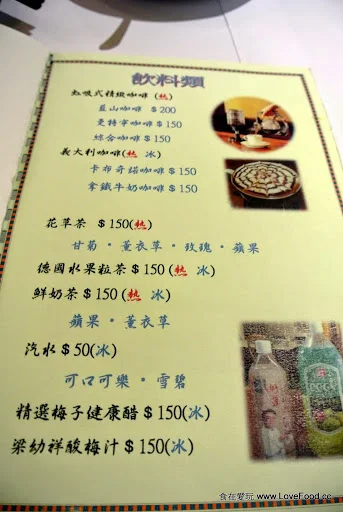 飲料類
虹吸式精緻咖啡 (熱)
藍山咖啡 $200
曼特寧咖啡 $150
綜合咖啡 $150
義大利咖啡(熱 冰)
卡布奇諾咖啡 $150
拿鐵牛奶咖啡 $150
花草茶 $150(熱)
甘菊·薰衣草·玫瑰·蘋果
德國水果粒茶 $150 (熱 冰)
鮮奶茶 $150 (熱 冰)
蘋果·薰衣草
汽水 $50(冰)
可口可樂·雪碧
精選梅子健康醋 $150(冰)
梁幼祥酸梅汁 $150(冰)
食在愛玩 www.LoveFood.cc